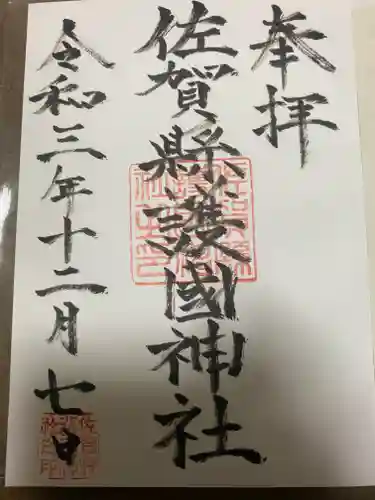 奉拝
佐賀縣護國神社
令和三年十二月七日